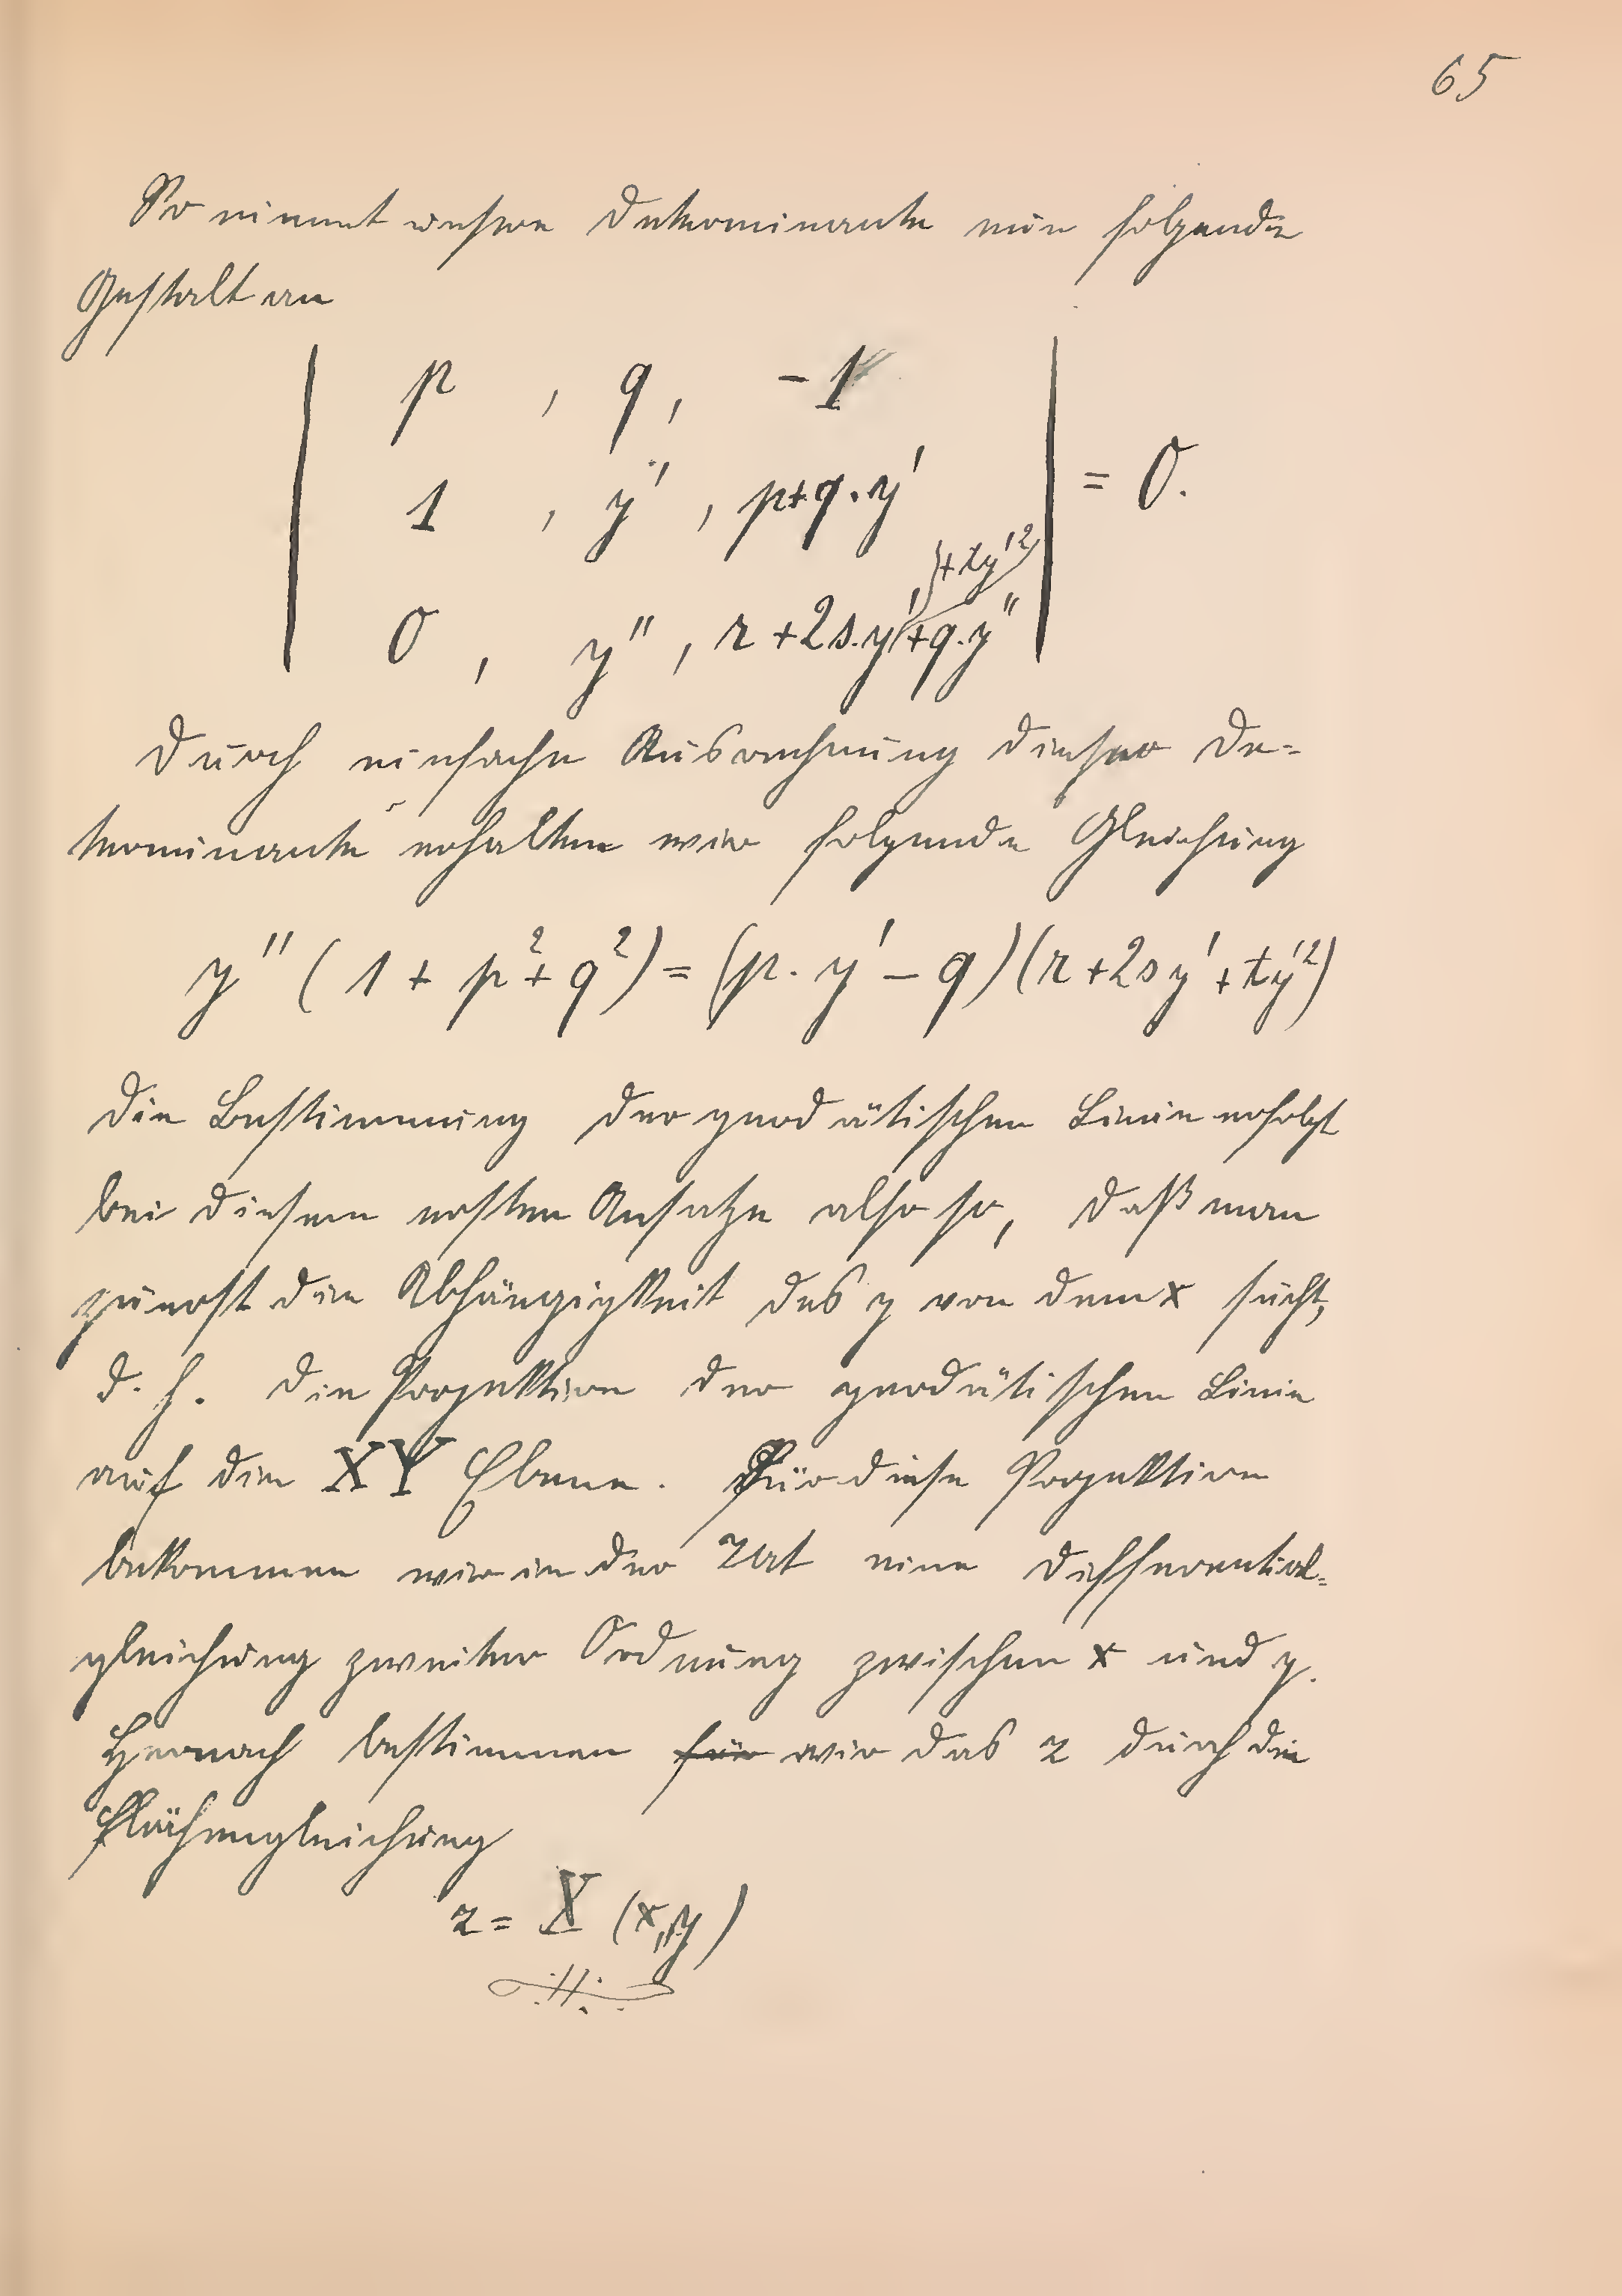 65
So nimmt unsere Determinante nun folgende
Gestalt an
| p , q , -1 |
| 1 , y' , p+q.y' | = 0.
+ty'²
| 0 , y'' , r+2s.y'+q.y'' |
Durch einfache Ausrechnung dieser De-
terminante erhalten wir folgende Gleichung
y''(1+p²+q²) = (p.y'-q)(r+2sy'+ty'²)
Die Bestimmung der geodätischen Linie erfolgt
bei diesem ersten Ansatze also so, daß man
zuerst die Abhängigkeit des y von dem x sucht,
d. h. die Projektion der geodätischen Linie
auf die XY Ebene. Für diese Projektion
bekommen wir in der Tat eine Differential-
gleichung zweiter Ordnung zwischen x und y.
Hernach bestimmen für wir das z durch die
Flächengleichung
z = X (x,y)